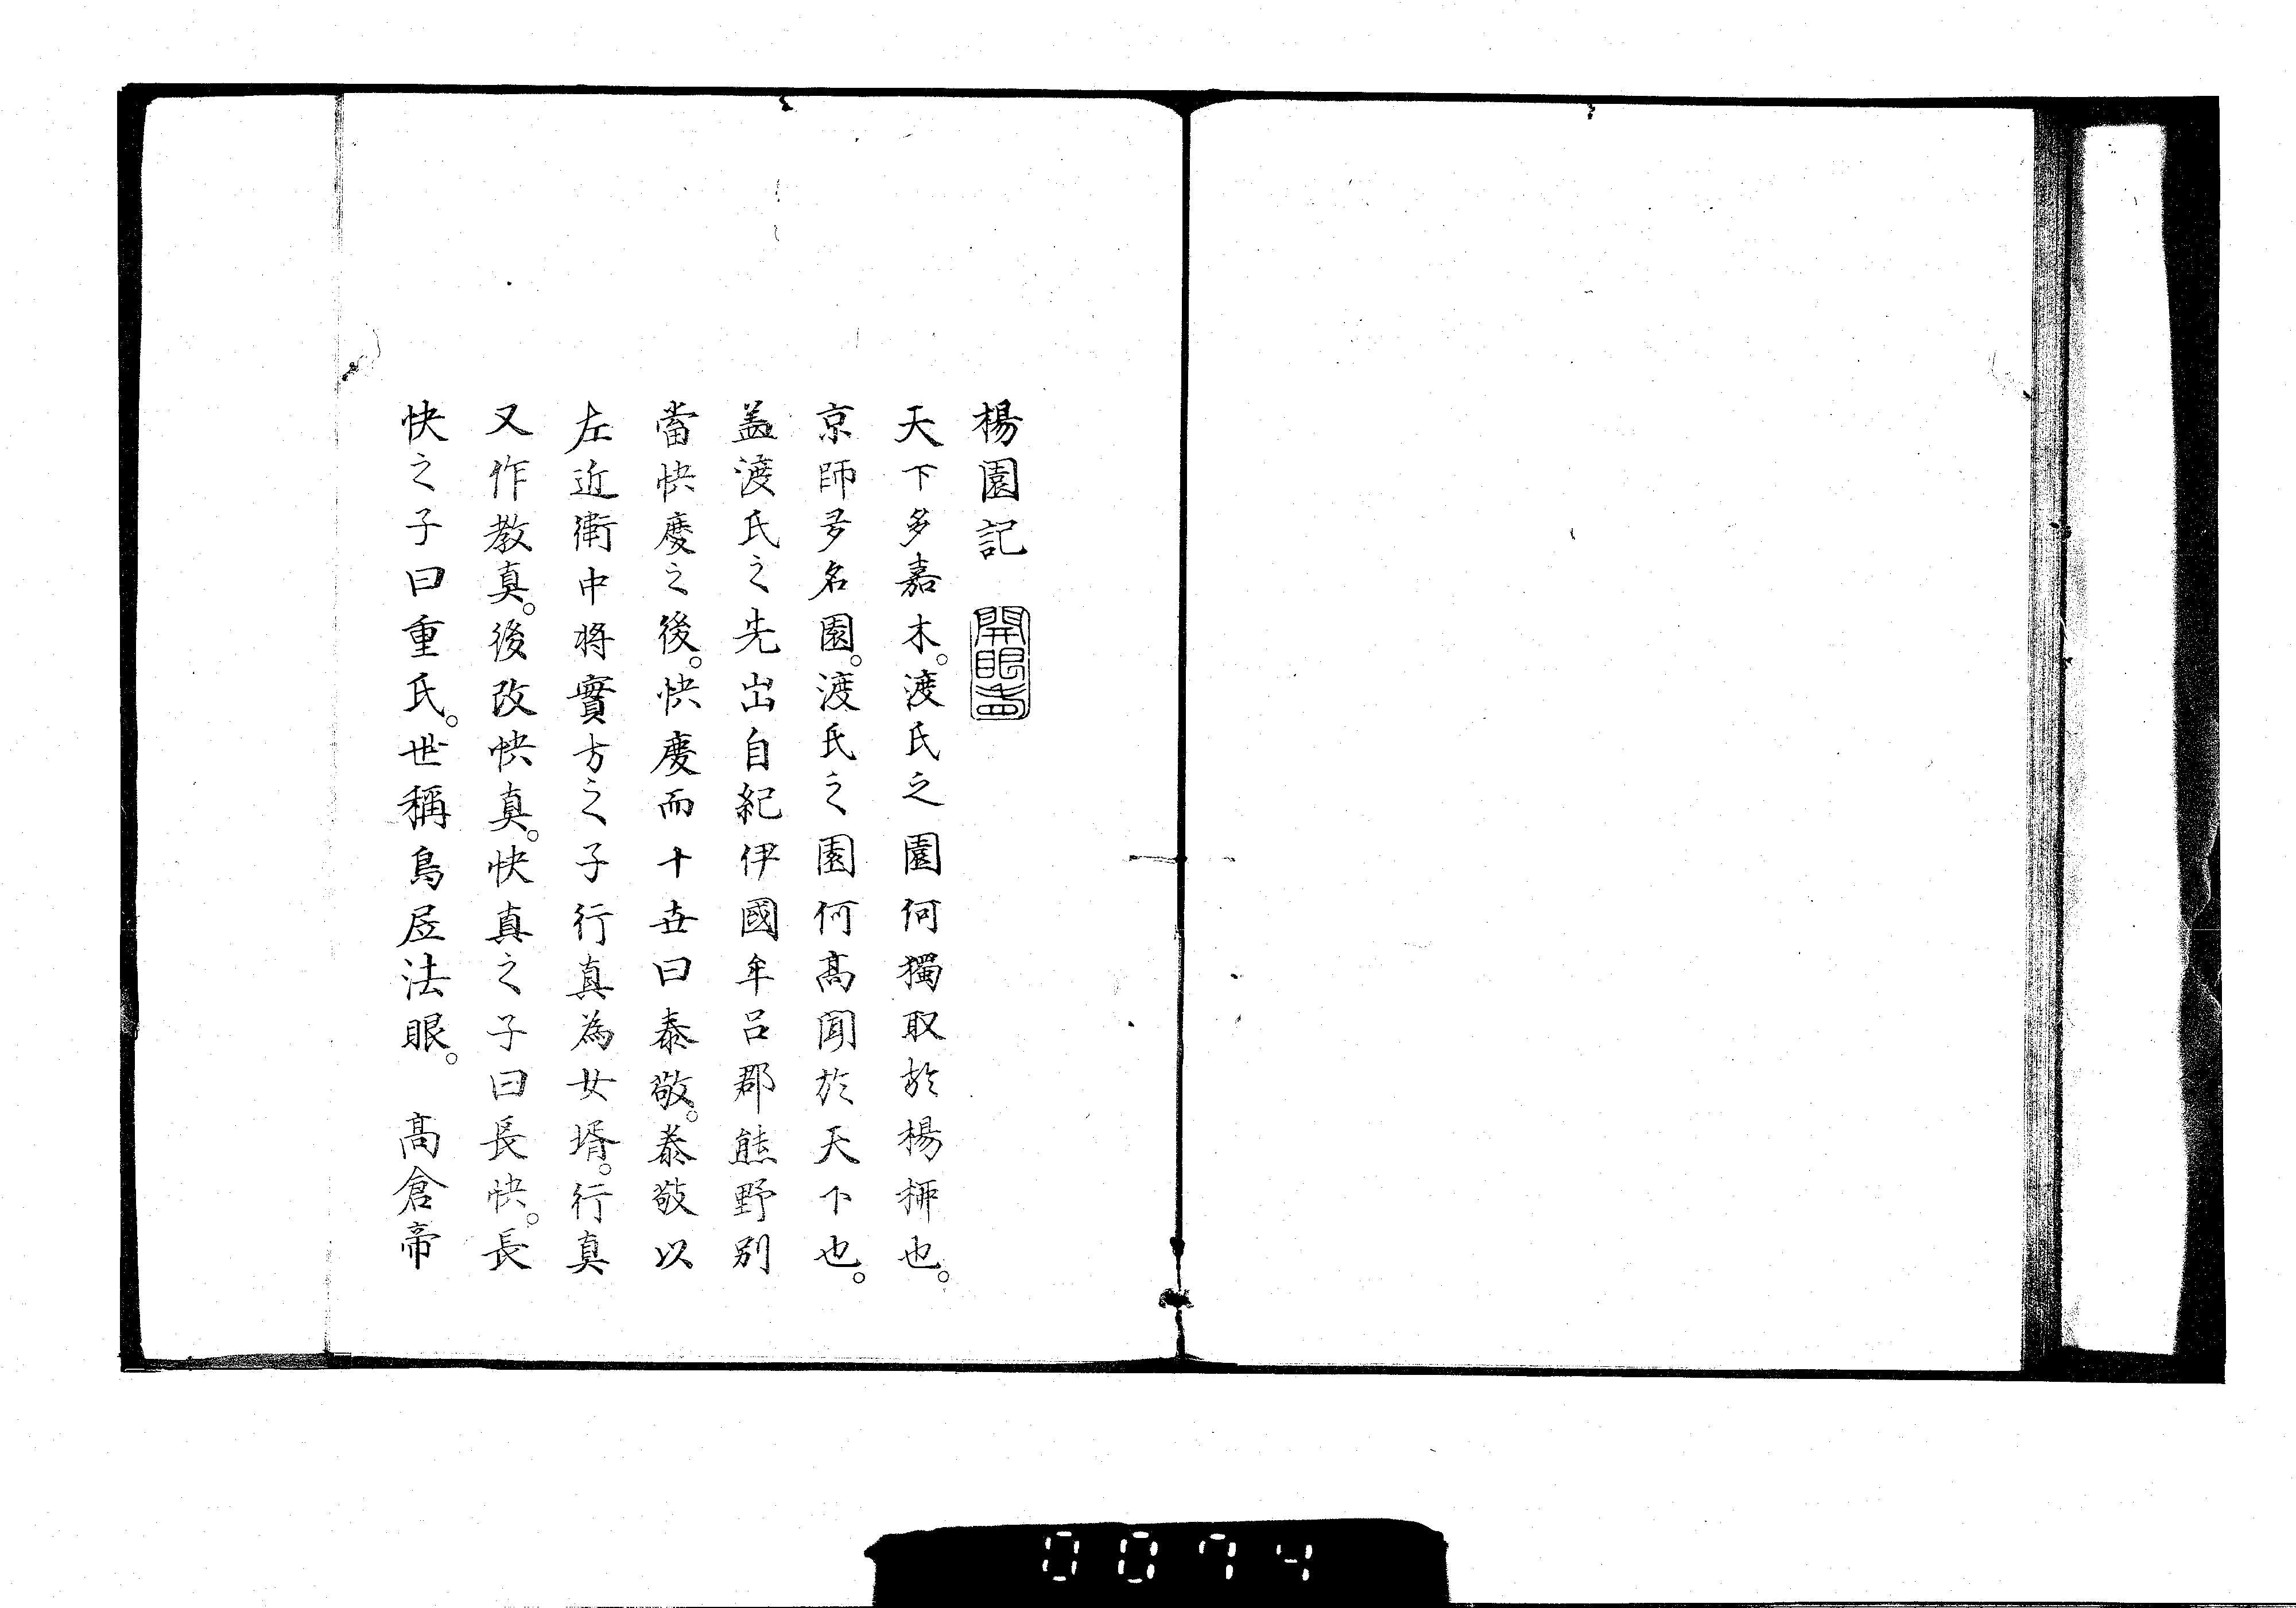 楊園記 開眼
天下多嘉木。渡氏之園何獨取於楊柳也。
京師多名園。渡氏之園何髙聞於天下也。
盖渡氏之先出自紀伊國牟呂郡熊野別
當快慶之後。快慶而十世曰泰敬。泰敬以
左近衛中将實方之子行真為女壻。行真
又作教真。後改快真。快真之子曰長快。長
快之子曰重氏。世稱鳥居法眼。 髙倉帝
0074